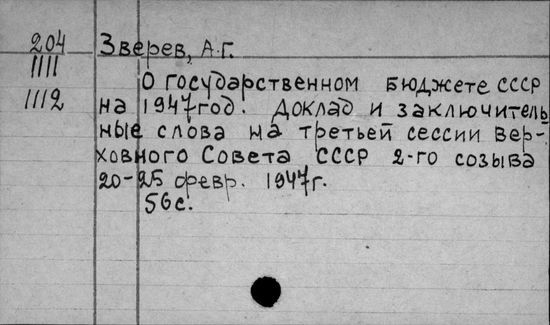 204 Зверев, А.Г.
1111
О государственном бюджете СССР
1112 на 1947 год. Доклад и заключитель-
ные слова на третьей сессии Вер-
ховного Совета СССР 2-го созыва
20-25 февр. 1947г.
56с.